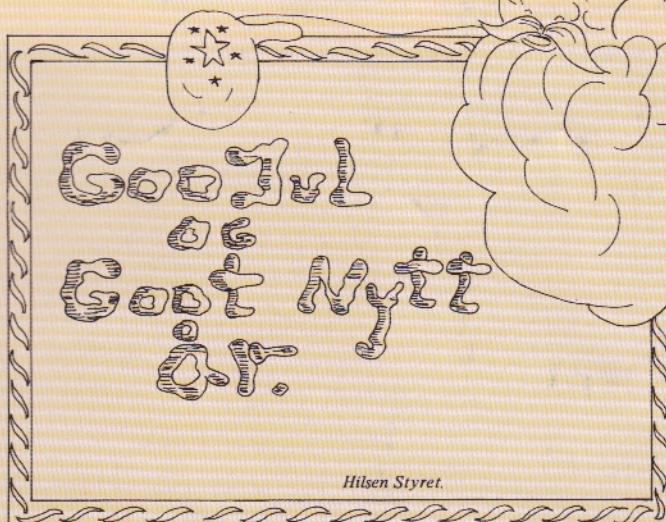 God Jul
og
Godt Nytt
År.
Hilsen Styret.